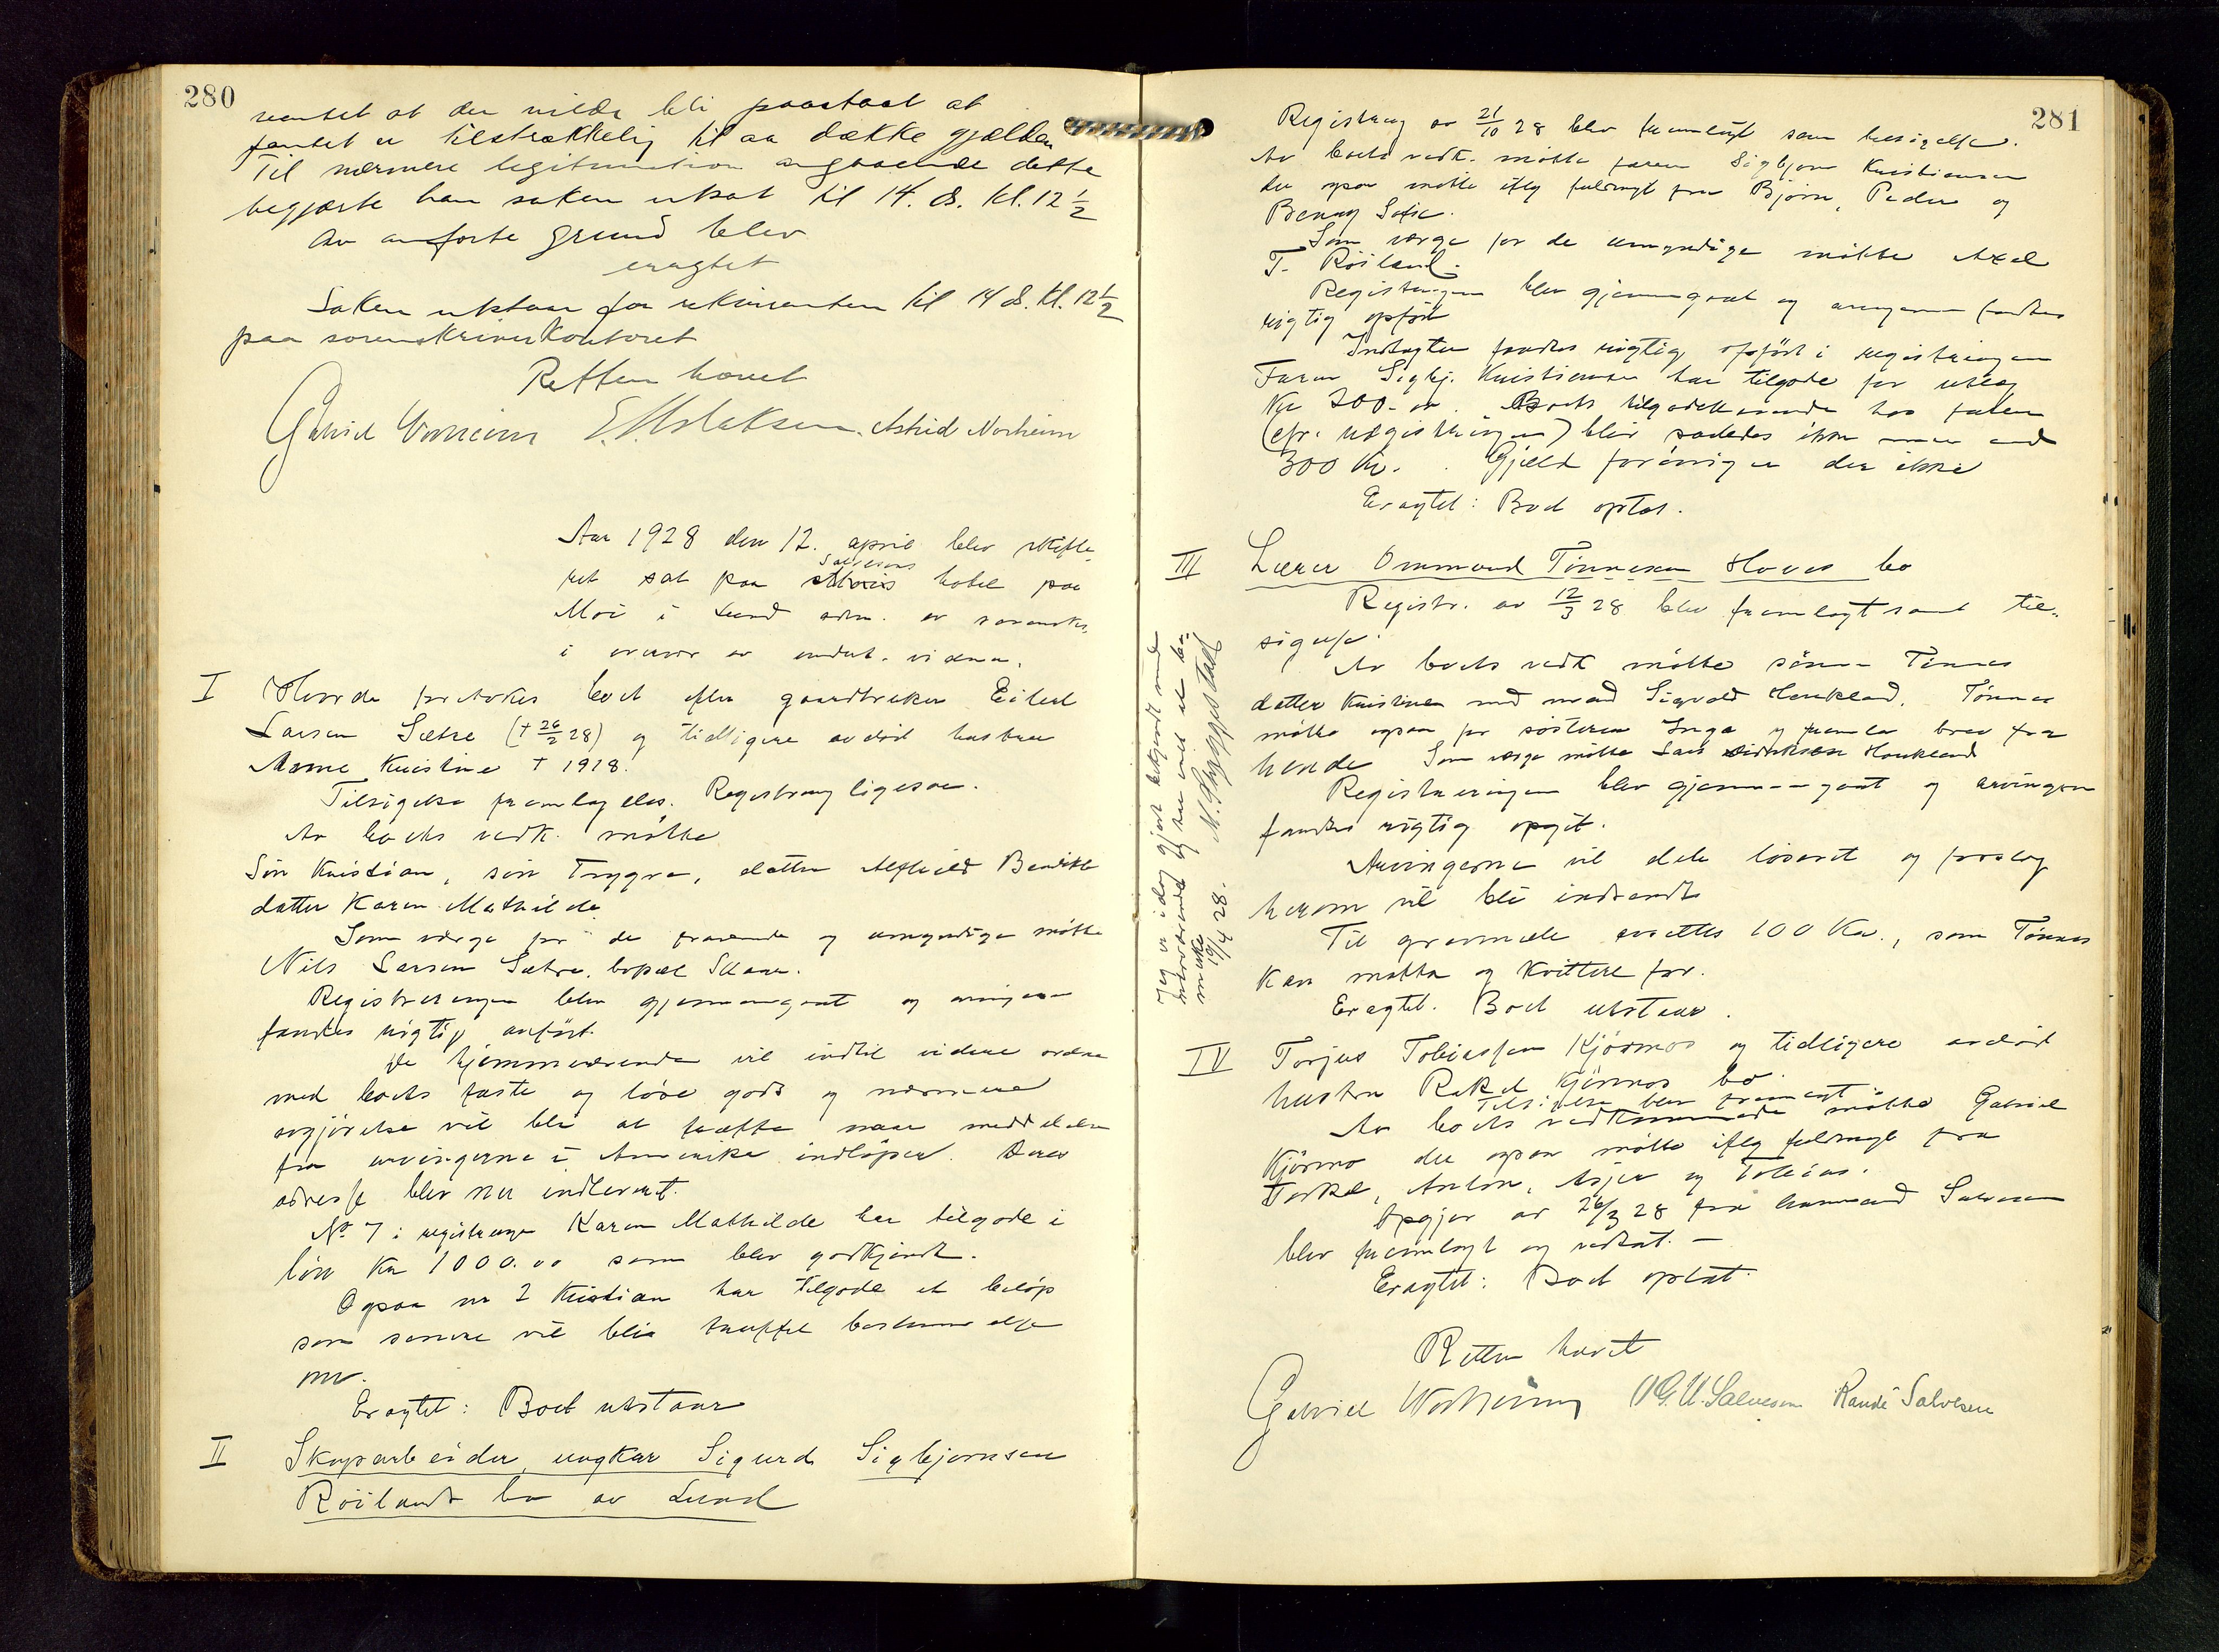 280
ventet at der vilde bli paastaat at
pantet er tilstrækkelig til aa dække gjælden
Til nærmere legitimation angaaende dette
begjærte han saken utsat til 14. ds. kl. 12 1/2
Av anførte grund blev
eragtet
Saken utstaar for rekvirenten til 14 ds. kl. 12 1/2
paa sorenskriverkontoret
Retten hævet
Gabriel E. Aslaksen. Astrid Norheim
Aar 1928 den 12. april blev skifte-
Salvesens
ret sat paa hotel paa
Moi i Lund adm. av sorenskr.
i overvær av undert. vidner.
I Hvorda foretokes boet efter gaardbruker Eilert
Larsen Sætre († 26/2 28) og tidligere avdød hustru
Anne Kristine † 1918.
Tilsigelse fremlagdes. Registrering ligesaa.
Av boets vedk. møtte
Søn Kristian, søn Trygve, datter Alfhild Bendikte
datter Karen Mathilde
Som værge for de fraværende og umyndige møtte
Nils Larsen Sætre, bopæl Skaar.
Registreringen blev gjennemgaat og arvingerne
fandtes rigtig anført.
De hjemmeværende vil indtil videre ordne
med boets faste og løse gods og nærmere
avgjørelse vil bli at træffe naar meddelelse
fra arvingerne i Amerika indløper. Deres
adresse blev nu indlevert.
No 7 i registreringen Karen Mathilde har tilgode i
løn Kr 1000.00 som blev godkjendt.
Ogsaa nr 2 Kristian har tilgode et beløp
som senere vil bli truffet bestemmelse
om.
Eragtet: Boet utstaar
II Skoparbeider, ungkar Sigurd Sigbjørnsen
Röilands bo av Lund
281
Registrering av 21/10 28 blev fremlagt samt tilsigelse.
Av boets vedk. møtte faren Sigbjørn Kristiansen
der ogsaa møtte iflg fuldmagt fra Bjørn, Peder og
Benny Sofie.
Som værge for de umyndige møtte Axel
T. Röiland.
Registreringen blev gjennemgaat og arvingerne fandtes
rigtig opført
Indtægten fandtes rigtig opført i registreringen
Faren Sigbj. Kristiansen har tilgode for utlæg
Kr 200.00. Boets tilgodehavende hos faren
(cfr. registreringen) blir saaledes ikke mere end
300 Kr. Gjæld forøvrig er der ikke
Eragtet: Boet optat.
III Lærer Ommund Tønnesen Hoves bo
Registr. av 12/3 28 blev fremlagt samt til-
sigelse.
Av boets vedk møtte sønnen Tønnes
datter Kristine med mand Sigvald Haukland. Tønnes
møtte ogsaa for søsteren Inga og fremla brev fra
hende Som værge møtte Lars Haukland
Registreringen blev gjennemgaat og arvingerne
fandtes rigtig opgit.
Arvingerne vil dele løsøret og forslag
herom vil bli indsendt
Til gravmæle avsættes 100 Kr., som Tønnes
kan motta og kvittere for.
Eragtet. Boet utstaar.
Jeg er idag gjort bekjendt med
og har intet at be-
merke
19/4 28. N. Skyggestad
IV Torjus Tobiassen Kjørmos og tidligere avdød
hustru Rakel Kjørmos bo
Tilsigelse blev fremlagt
Av boets vedkommende møtte Gabriel
Kjørmo der ogsaa møtte iflg fuldmagt fra
Torkel, Anton, Asjer og Tobias.
Opgjør av 26/3 28 fra Salvesen
blev fremlagt og vedtat. —
Eragtet: Boet optat.
Retten hævet
Gabriel O. G. U. Salvesen Randi Salvesen